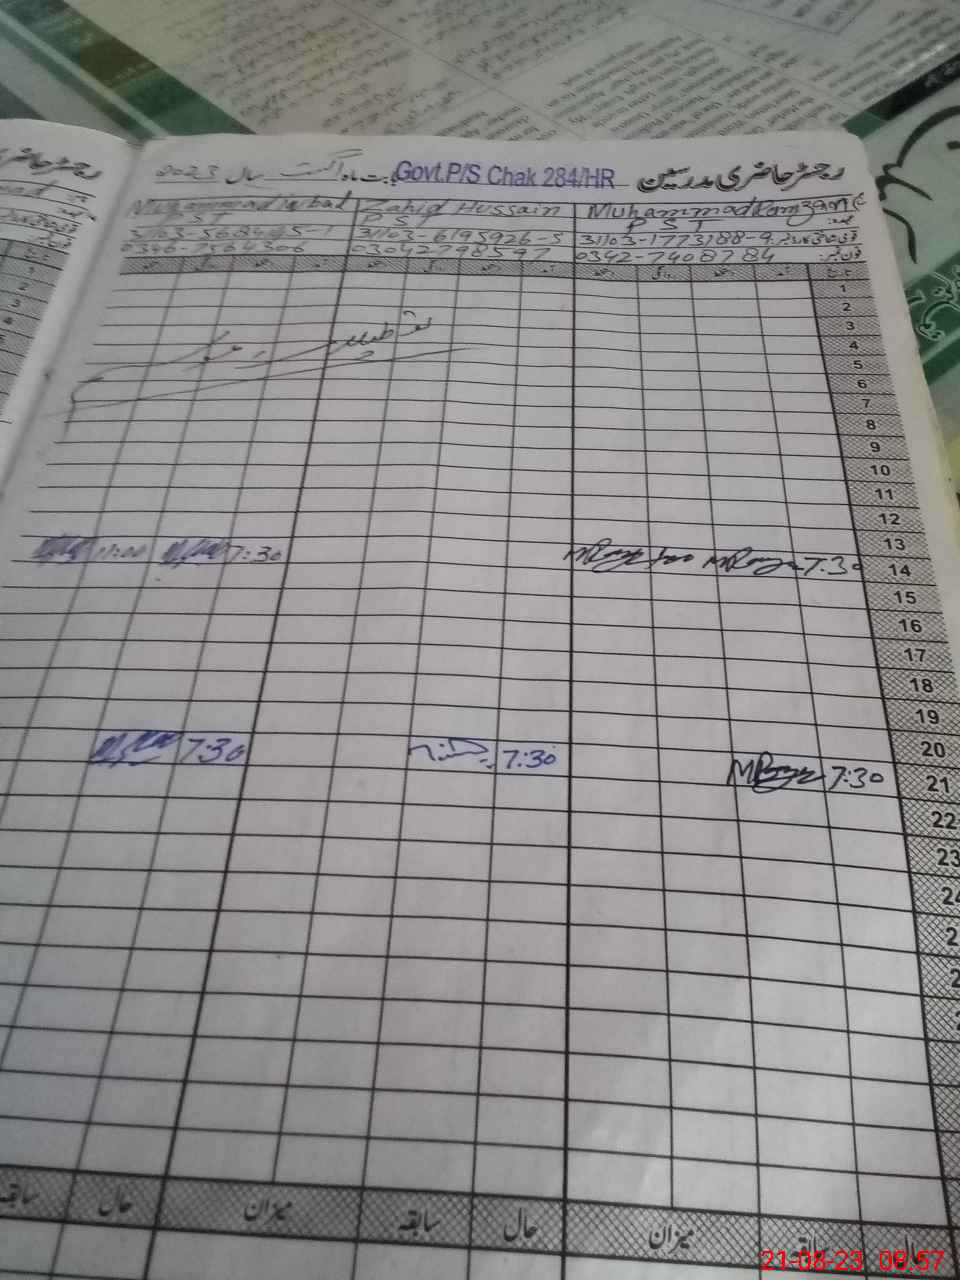 رجسٹر حاضری مدرسین Govt.P/S Chak 284/HR بابت ماہ اگست سال 2023
Muhammad Ramzan Zahid Hussain Muhammad Iqbal
عہدہ P S T P S T P S T
قومی شناختی کارڈ نمبر 31103-1773188-9 31103-6195926-5
فون نمبر: 0342-7408784 03042798597 0346-7564306
تاریخ آمد دستخط روانگی دستخط آمد دستخط روانگی دستخط آمد دستخط روانگی دستخط
1
2
3
4
5
6
7
8
9
10
11
12
13
14 7:30 7:30 11:00
15
16
17
18
19
20
21 7:30 7:30 7:30
22
23
24
حال میزان سابقہ حال میزان سابقہ حال
21-08-23 08:57